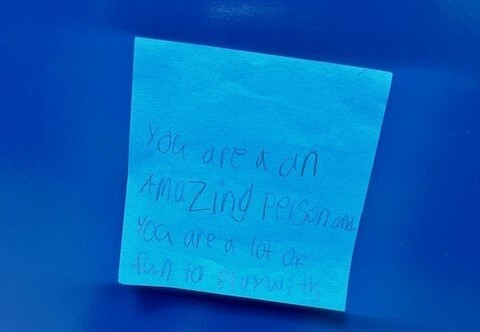 You are a an
AmaZing person and
You are a lot of
fun to play with